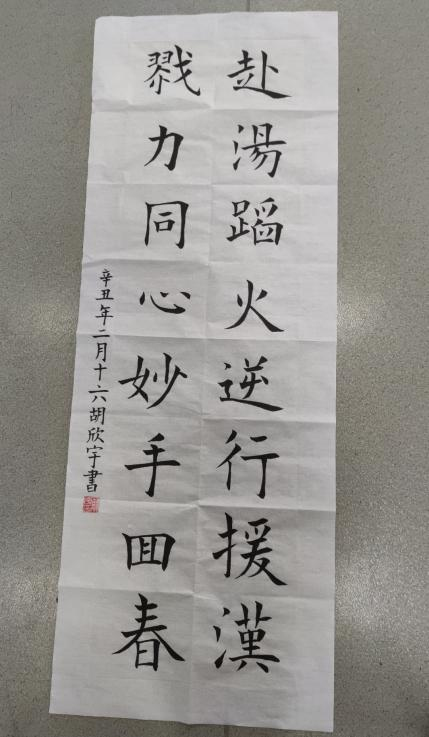 赴湯蹈火逆行援漢
戮力同心妙手囬春
辛丑年二月十六胡欣宇書